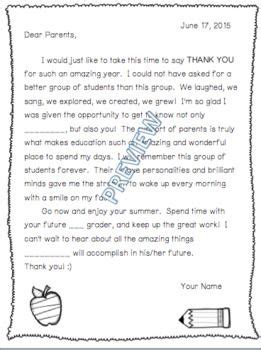 June 17, 2015
Dear Parents,
I would just like to take this time to say THANK YOU
for such an amazing year. I could not have asked for a
better group of students than this group. We laughed, we
sang, we explored, we created, we grew! I'm so glad I
was given the opportunity to get know not only
________, but also you! The of parents is truly
what makes education such amazing and wonderful
place to spend my days. I remember this group of
students forever. Their personalities and brilliant
minds gave me the to wake up every morning
with a smile on my
Go now and enjoy your summer. Spend time with
your future ___ grader, and keep up the great work! I
can't wait to hear about all the amazing things
_________ will accomplish in his/her future.
Thank you! :)
Your Name
PREVIEW